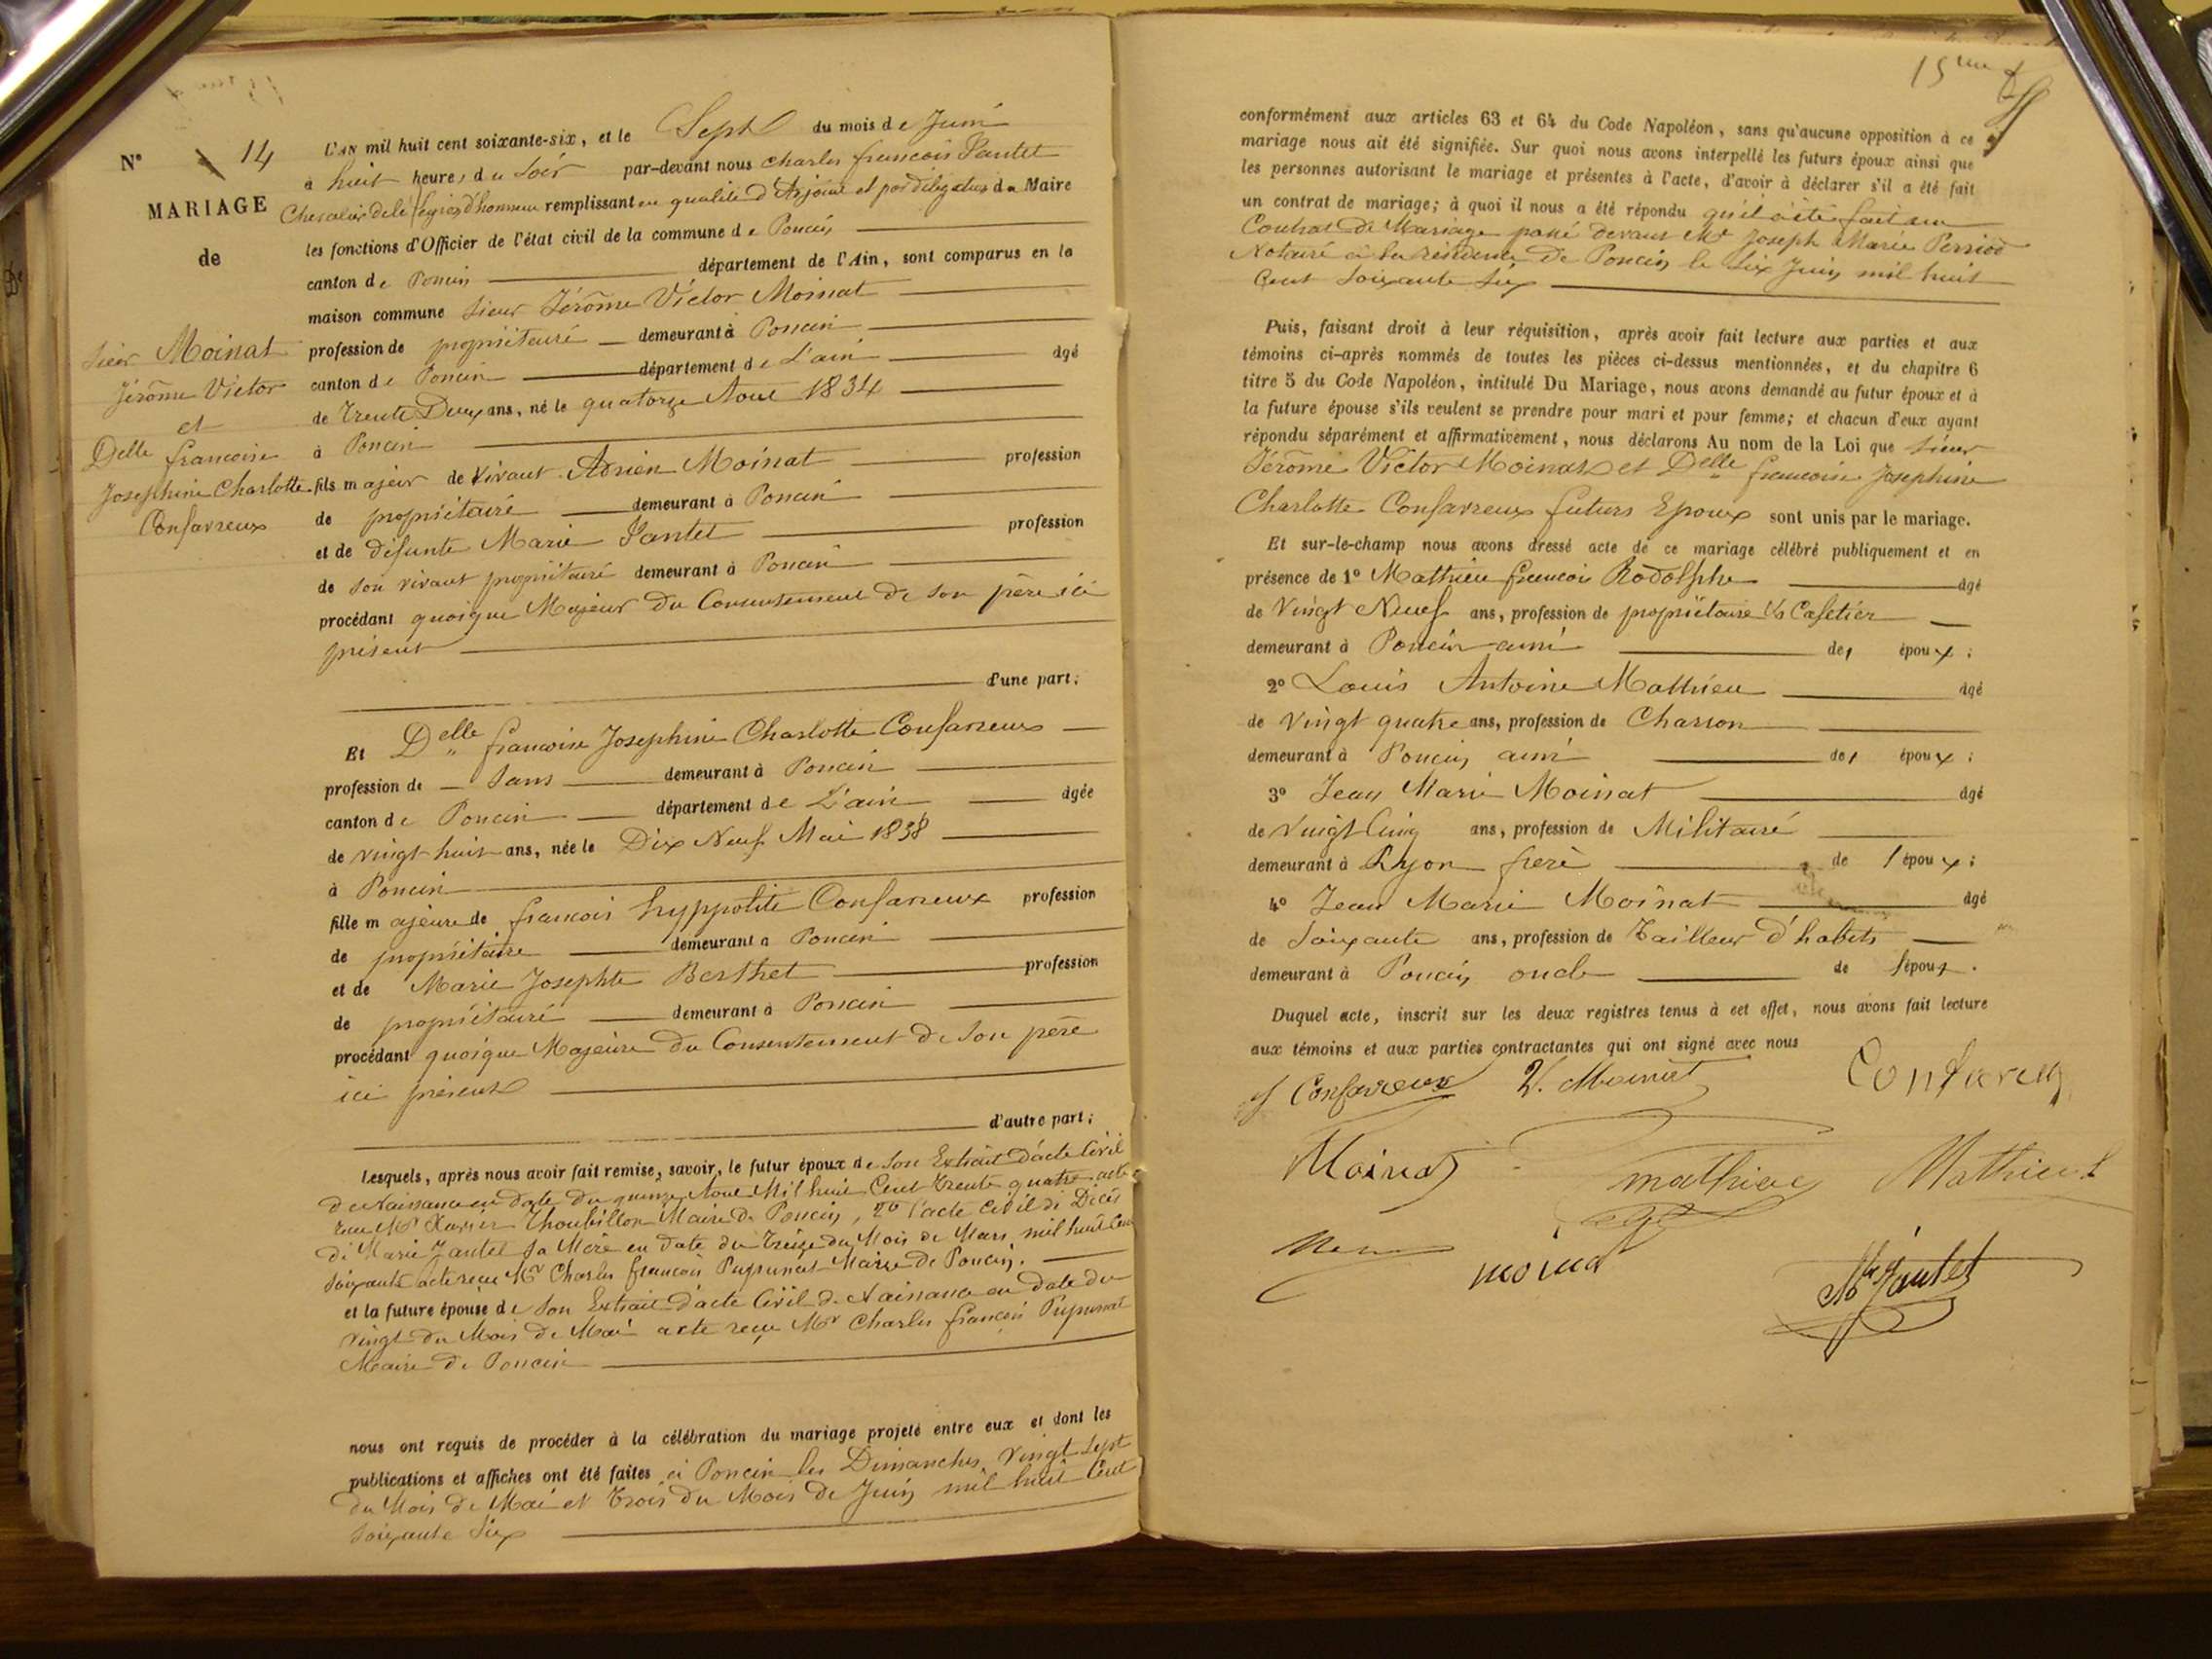 N° 14
MARIAGE
de
Sieur Moinat
Jérôme Victor
et
Delle francoise
Josephine Charlotte
Confavreux
L'AN mil huit cent soixante-six, et le Sept du mois de Juin
à huit heures du Soir par-devant nous charles francois Jantet
Chevalier de la légion d'honneur remplissant en qualité d'Adjoint et par délégation du Maire
les fonctions d'Officier de l'état civil de la commune de Poncin
canton de Poncin département de l'Ain, sont comparus en la
maison commune Sieur Jérôme Victor Moinat
profession de propriétaire demeurant à Poncin
canton de Poncin département de L'ain âgé
de trente Deux ans, né le quatorze Aout 1834
à Poncin
fils majeur de vivant Adrien Moinat profession
de propriétaire demeurant à Poncin
et de défunte Marie Jantet profession
de son vivant propriétaire demeurant à Poncin
procédant quoique Majeur du Consentement de son père ici
présent
d'une part;
Et Delle francoise Josephine Charlotte Confavreux
profession de Sans demeurant à Poncin
canton de Poncin département de L'ain âgée
de vingt huit ans, née le Dix Neuf Mai 1838
à Poncin
fille majeure de francois hyppolite Confavreux profession
de propriétaire demeurant a Poncin
et de Marie Josephte Berthet profession
de propriétaire demeurant à Poncin
procédant quoique Majeure du Consentement de son père
ici présent
d'autre part;
Lesquels, après nous avoir fait remise, savoir, le futur époux de son Extrait d'acte Civil
de Naissance en date du quinze Aout Mil huit Cent trente quatre acte
recu Mr Xavier Thoubillon Maire de Poncin, 2° l'acte Civil de Décès
de Marie Jantet sa Mère en date du treize du Mois de Mars mil huit Cent
soixante acte recu Mr Charles francois Pupunat Maire de Poncin.
et la future épouse de son Extrait d'acte Civil de Naissance en date du
vingt du Mois de Mai acte reçu Mr Charles francois Pupunat
Maire de Poncin
nous ont requis de procéder à la célébration du mariage projeté entre eux et dont les
publications et affiches ont été faites à Poncin les Dimanches vingt Sept
du Mois de Mai et trois du Mois de Juin mil huit Cent
soixante Six
15me
conformément aux articles 63 et 64 du Code Napoléon, sans qu'aucune opposition à ce
mariage nous ait été signifiée. Sur quoi nous avons interpellé les futurs époux ainsi que
les personnes autorisant le mariage et présentes à l'acte, d'avoir à déclarer s'il a été fait
un contrat de mariage; à quoi il nous a été répondu qu'il a été fait un
Contrat de Mariage passé devant Me Joseph Marie Perriod
Notaire à la résidence de Poncin le six Juin mil huit
Cent soixante Six
Puis, faisant droit à leur réquisition, après avoir fait lecture aux parties et aux
témoins ci-après nommés de toutes les pièces ci-dessus mentionnées, et du chapitre 6
titre 5 du Code Napoléon, intitulé Du Mariage, nous avons demandé au futur époux et à
la future épouse s'ils veulent se prendre pour mari et pour femme; et chacun d'eux ayant
répondu séparément et affirmativement, nous déclarons Au nom de la Loi que Sieur
Jérôme Victor Moinat et Delle francoise Josephine
Charlotte Confavreux futurs Epoux sont unis par le mariage.
Et sur-le-champ nous avons dressé acte de ce mariage célébré publiquement et en
présence de 1° Mathieu francois Rodolphe âgé
de vingt Neuf ans, profession de propriétaire & Cafetier
demeurant à Poncin ami des époux;
2° Louis Antoine Mathieu âgé
de vingt quatre ans, profession de Charron
demeurant à Poncin ami des époux;
3° Jean Marie Moinat âgé
de vingt Cinq ans, profession de Militaire
demeurant à Lyon frère de l'époux;
4° Jean Marie Moinat âgé
de Soixante ans, profession de Tailleur d'habits
demeurant à Poncin oncle de l'époux.
Duquel acte, inscrit sur les deux registres tenus à cet effet, nous avons fait lecture
aux témoins et aux parties contractantes qui ont signé avec nous
J Confavreux V. Moinat Confavreu
Moinat mathieu Mathieu L
moinat Jantet